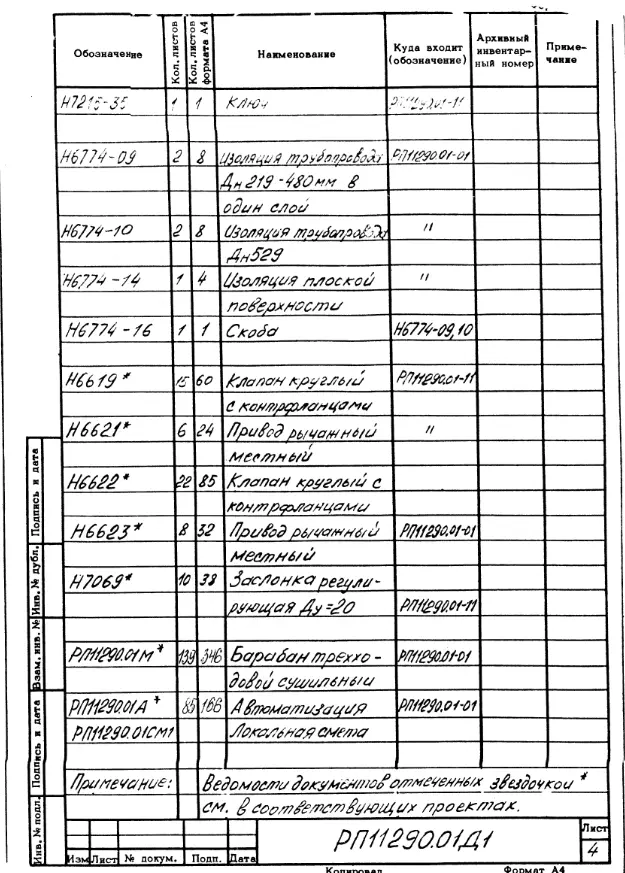 Обозначение Кол. листов Кол. листов формата А4 Наименование Куда входит (обозначение) Архивный инвентарный номер Примечание
Н7215-35 1 1 Ключ
Н6774-09 2 8 Изоляция трубопровода РП11290.01-01
Дн219-480мм в
один слой
Н6774-10 2 8 Изоляция трубопровода "
Дн529
Н6774-14 1 4 Изоляция плоской "
поверхности
Н6774-16 1 1 Скоба Н6774-09,10
Н6619* 15 60 Клапан круглый РП11290.01-11
с контрфланцами
Н6621* 6 24 Привод рычажный "
местный
Н6622* 22 85 Клапан круглый с
контрфланцами
Н6623* 8 32 Привод рычажный РП11290.01-01
местный
Н7069* 10 38 Заслонка регули-
рующая Ду=20 РП11290.01-11
РП11290.01М* 139 346 Барабан треххо- РП11290.01-01
довой сушильный
РП11290.01А* 85 166 Автоматизация РП11290.01-01
РП11290.01СМ1 Локальная смета
Примечание: Ведомости документов отмеченных звездочкой *
см. в соответствующих проектах.
Подпись и дата
Инв. № дубл.
Взам. инв. №
Подпись и дата
Инв. № подл.
Изм Лист № докум. Подп. Дата
РП11290.01Д1
Лист
4
Копировал Формат А4